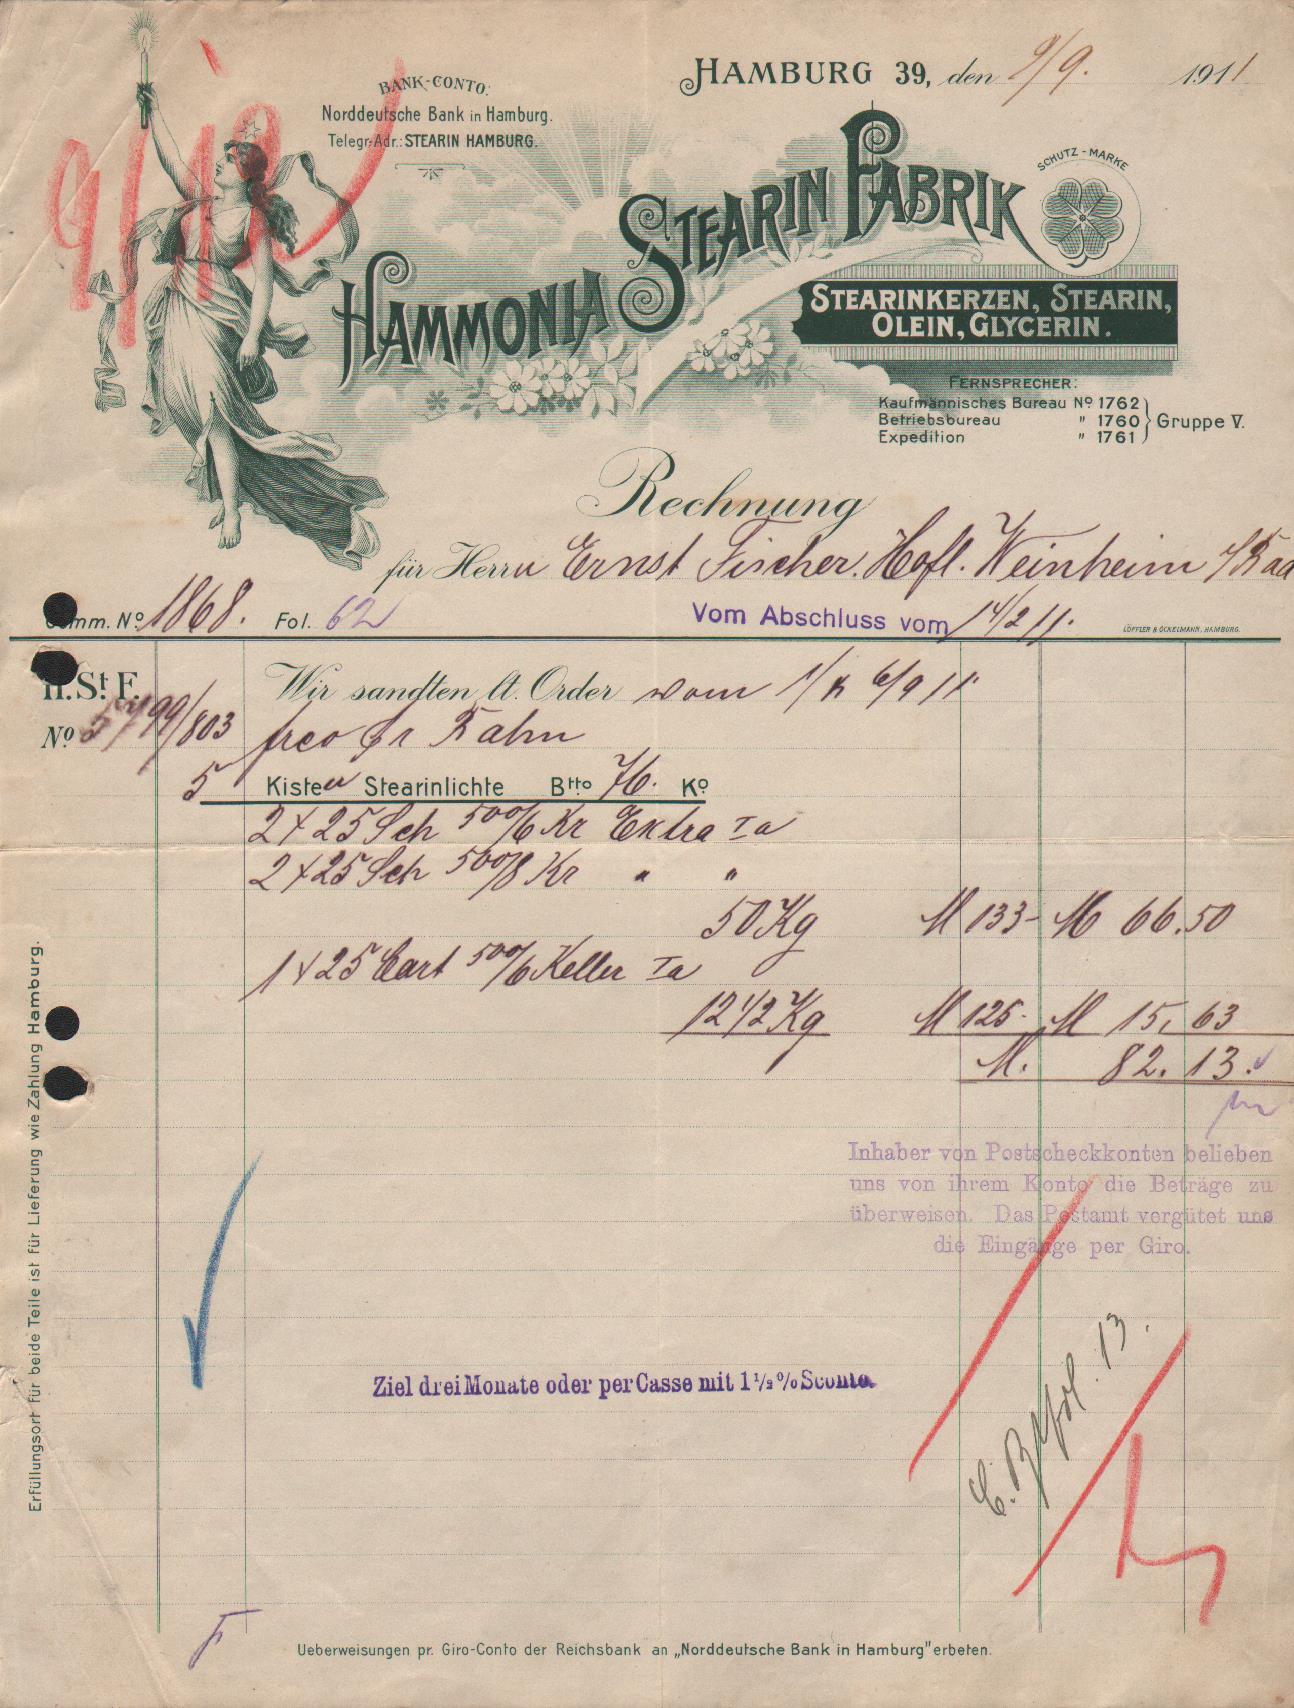 BANK-CONTO:
Norddeutsche Bank in Hamburg.
Telegr.-Adr.: STEARIN HAMBURG.
HAMBURG 39, den 9/9. 1911
HAMMONIA STEARIN FABRIK
SCHUTZ-MARKE
STEARINKERZEN, STEARIN,
OLEIN, GLYCERIN.
FERNSPRECHER:
Kaufmännisches Bureau No 1762
Betriebsbureau " 1760
Expedition " 1761
Gruppe V.
Rechnung
für Herrn Ernst Fischer. Hofl. Weinheim
Comm. No. 1868. Fol. 62
Vom Abschluss vom 14/2 11.
LÖFFLER & ÖCKELMANN, HAMBURG.
H. St. F.
Wir sandten lt. Order vom 1/ 6/9 11
No. 5799/803 frco pr Bahn
5 Kisten Stearinlichte Btto 76. Ko
2 x 25 Sch 500/6 Kr Extra Ia
2 x 25 Sch 500/8 Kr " "
50 Kg M 133- M 66.50
1 x 25 Cart 500/6 Keller Ia
12 1/2 Kg M 125- M 15,63
M. 82.13.
Inhaber von Postscheckkonten belieben
uns von ihrem Konto die Beträge zu
überweisen. Das Postamt vergütet uns
die Eingänge per Giro.
Ziel drei Monate oder per Casse mit 1 1/2 % Sconto.
Erfüllungsort für beide Teile ist für Lieferung wie Zahlung Hamburg.
Ueberweisungen pr. Giro-Conto der Reichsbank an „Norddeutsche Bank in Hamburg" erbeten.